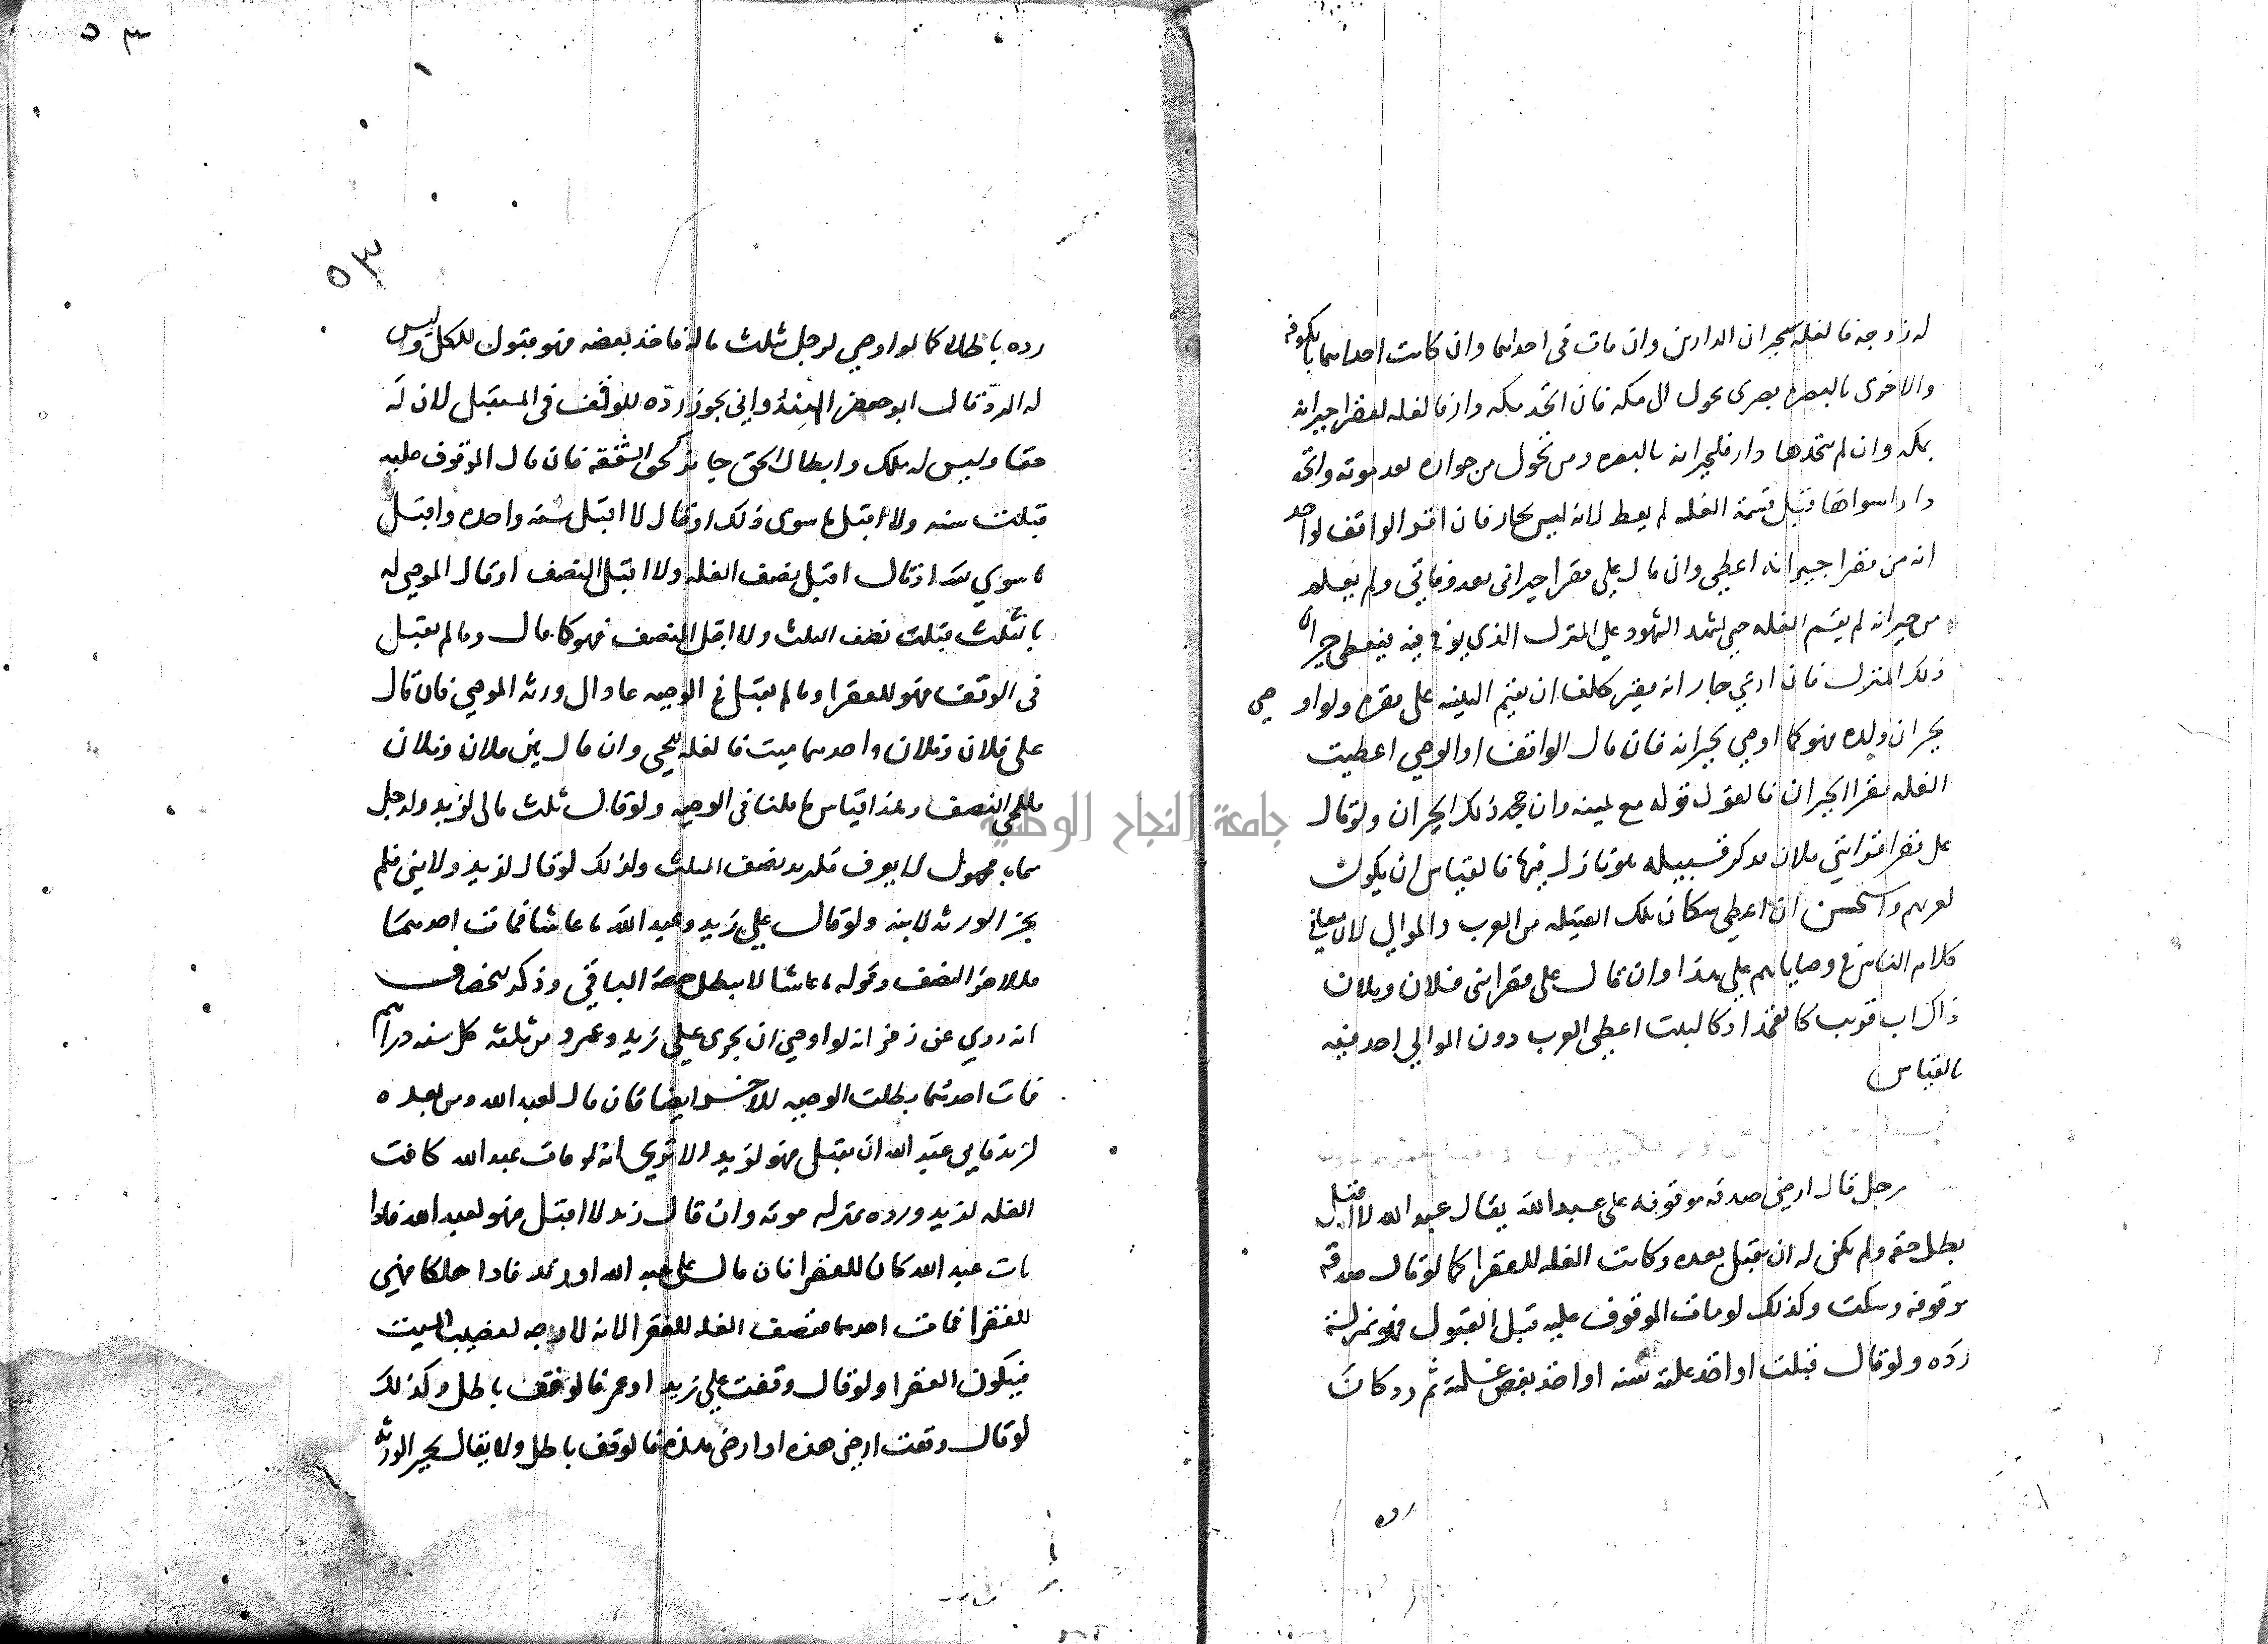 له زوجة فالغله لجيران الدارين وان مات في احداهما وان كانت احداهما بالكوفة
والاخرى بالبصرة بصرى تحول الى مكه فان اتخذ بمكه دارا فالغله لفقرا جيرانه
بمكه وان لم يتخذها دار فلجيرانه بالبصره ومن تحول من جواره بعد موته واتخذ
دارا سواها قبل قسمة الغله لم يعط لانه ليس بجار فان اقر الواقف لواحد
انه من فقرا جيرانه اعطي وان قال على فقرا جيراني بعد وفاتي ولم يعلم
من جيرانه لم يقسم الغله حتى يشهد الشهود على المنزل الذي توفي فيه فيعطى جيران
ذلك المنزل فان ادعى جار انه فقير كلف ان يقيم البينه على فقره ولو اوصى
لجيران ولده فهو كما اوصي لجيرانه فان قال الواقف او الوصي اعطيت
الغله فقرا الجيران فالقول قوله مع يمينه وان جحد ذلك الجيران ولو قال
على فقرا قرابتي فلان فذكر قبيله هو نازل فيها فالقياس ان يكون
لعربهم واستحسن ان اعطي سكان تلك القبيله من العرب والموالي لان معاني
كلام الناس في وصاياهم على هذا وان قال على فقرا بني فلان وفلان
ذاك اب قريب كالفخذ او كالبيت اعطي العرب دون الموالي اخذ فيه
بالقياس
رجل قال ارضي صدقه موقوفه على عبد الله فقال عبد الله لا اقبل
بطل حقه ولم يكن له ان يقبل بعده وكانت الغله للفقرا كما لو قال صدقة
موقوفه وسكت وكذلك لو مات الموقوف عليه قبل القبول فهو بمنزلة
رده ولو قال قبلت او اخذ غلته سنه او اخذ بعض غلته ثم رد كان
٥٣
٥٣
رده باطلا كما لو اوصي لرجل بثلث ماله فاخذ بعضه فهو قبول للكل وليس
له الرد قال ابو جعفر الهندواني يجوز رده للوقف في المستقبل لان له
حقا وليس له ملك وابطال الحق جايز كحق الشفعه فان قال الموقوف عليه
قبلت سنه ولا اقبل ما سوى ذلك او قال لا اقبل سنه واحده واقبل
ما سوي هذا او قال اقبل نصف الغله ولا اقبل النصف او قال الموصي له
بالثلث قبلت نصف الثلث ولا اقبل النصف فهو كما قال وما لم يقبل
في الوقف فهو للفقرا وما لم يقبل في الوصيه عاد الى ورثة الموصي فان قال
على فلان وفلان واحدهما ميت فالغله للحي وان قال بين فلان وفلان
فللحي النصف وهذا قياس ما قلنا في الوصيه ولو قال ثلث مالي لزيد ولرجل
سماه مجهول لا يعرف فلزيد نصف الثلث وكذلك لو قال لزيد ولابني فلم
يجز الورثه لابنه ولو قال على زيد وعبد الله ما عاشا فمات احدهما
فللاخر النصف وقوله ما عاشا لا يبطل حصة الباقي وذكر الخصاف
انه روي عن زفر انه لو اوصي ان يجرى على زيد وعمرو من ثلثه كل سنه دراهم
فمات احدهما بطلت الوصيه للاخر ايضا فان قال لعبد الله ومن بعده
لزيد فابى عبد الله ان يقبل فهو لزيد الا ترى انه لو مات عبد الله كانت
الغله لزيد ورده بمنزله موته وان قال زيد لا اقبل فهو لعبد الله فاذا
مات عبد الله كان للفقرا فان قال على عبد الله وزيد فاذا هلكا فهي
للفقرا فمات احدهما فنصف الغله للفقرا لانه لا وجه لنصيب الميت
فيكون الفقرا ولو قال وقفت على زيد او عمر فالوقف باطل وكذلك
لو قال وقفت ارضي هذه او ارضي هذه فالوقف باطل ولا يقال يجبر الورثه
جامعة النجاح الوطنية